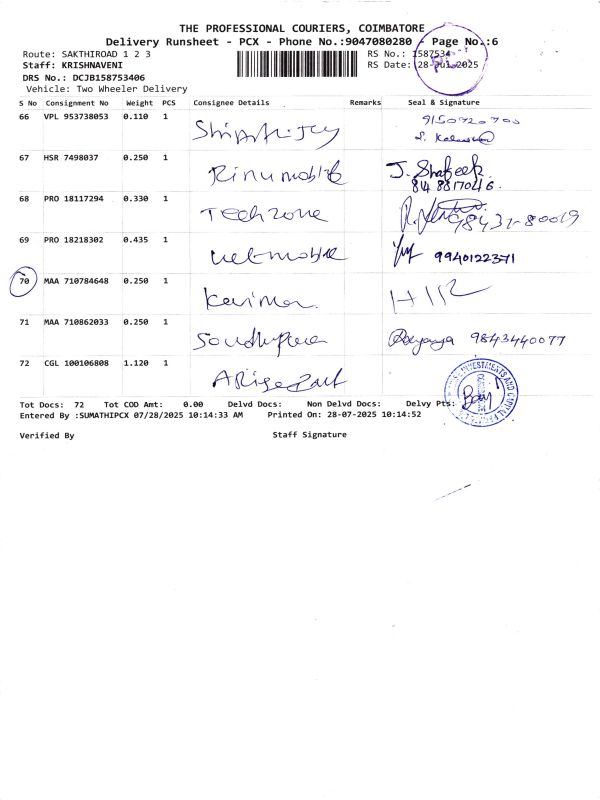 THE PROFESSIONAL COURIERS, COIMBATORE
Delivery Runsheet - PCX - Phone No.:9047080280 - Page No.:6
Route: SAKTHIROAD 1 2 3 RS No.: 1587534
Staff: KRISHNAVENI RS Date: 28-Jul-2025
DRS No.: DCJB158753406
Vehicle: Two Wheeler Delivery
S No Consignment No Weight PCS Consignee Details Remarks Seal & Signature
66 VPL 953738053 0.110 1
67 HSR 7498037 0.250 1 Rinu mobile J. Shafeek
8148817046
68 PRO 18117294 0.330 1 Techzone 98431-80019
69 PRO 18218302 0.435 1 net mobile 9940122371
70 MAA 710784648 0.250 1
71 MAA 710862033 0.250 1 9843440077
72 CGL 100106808 1.120 1
Tot Docs: 72 Tot COD Amt: 0.00 Delvd Docs: Non Delvd Docs: Delvy Pts:
Entered By :SUMATHIPCX 07/28/2025 10:14:33 AM Printed On: 28-07-2025 10:14:52
Verified By Staff Signature